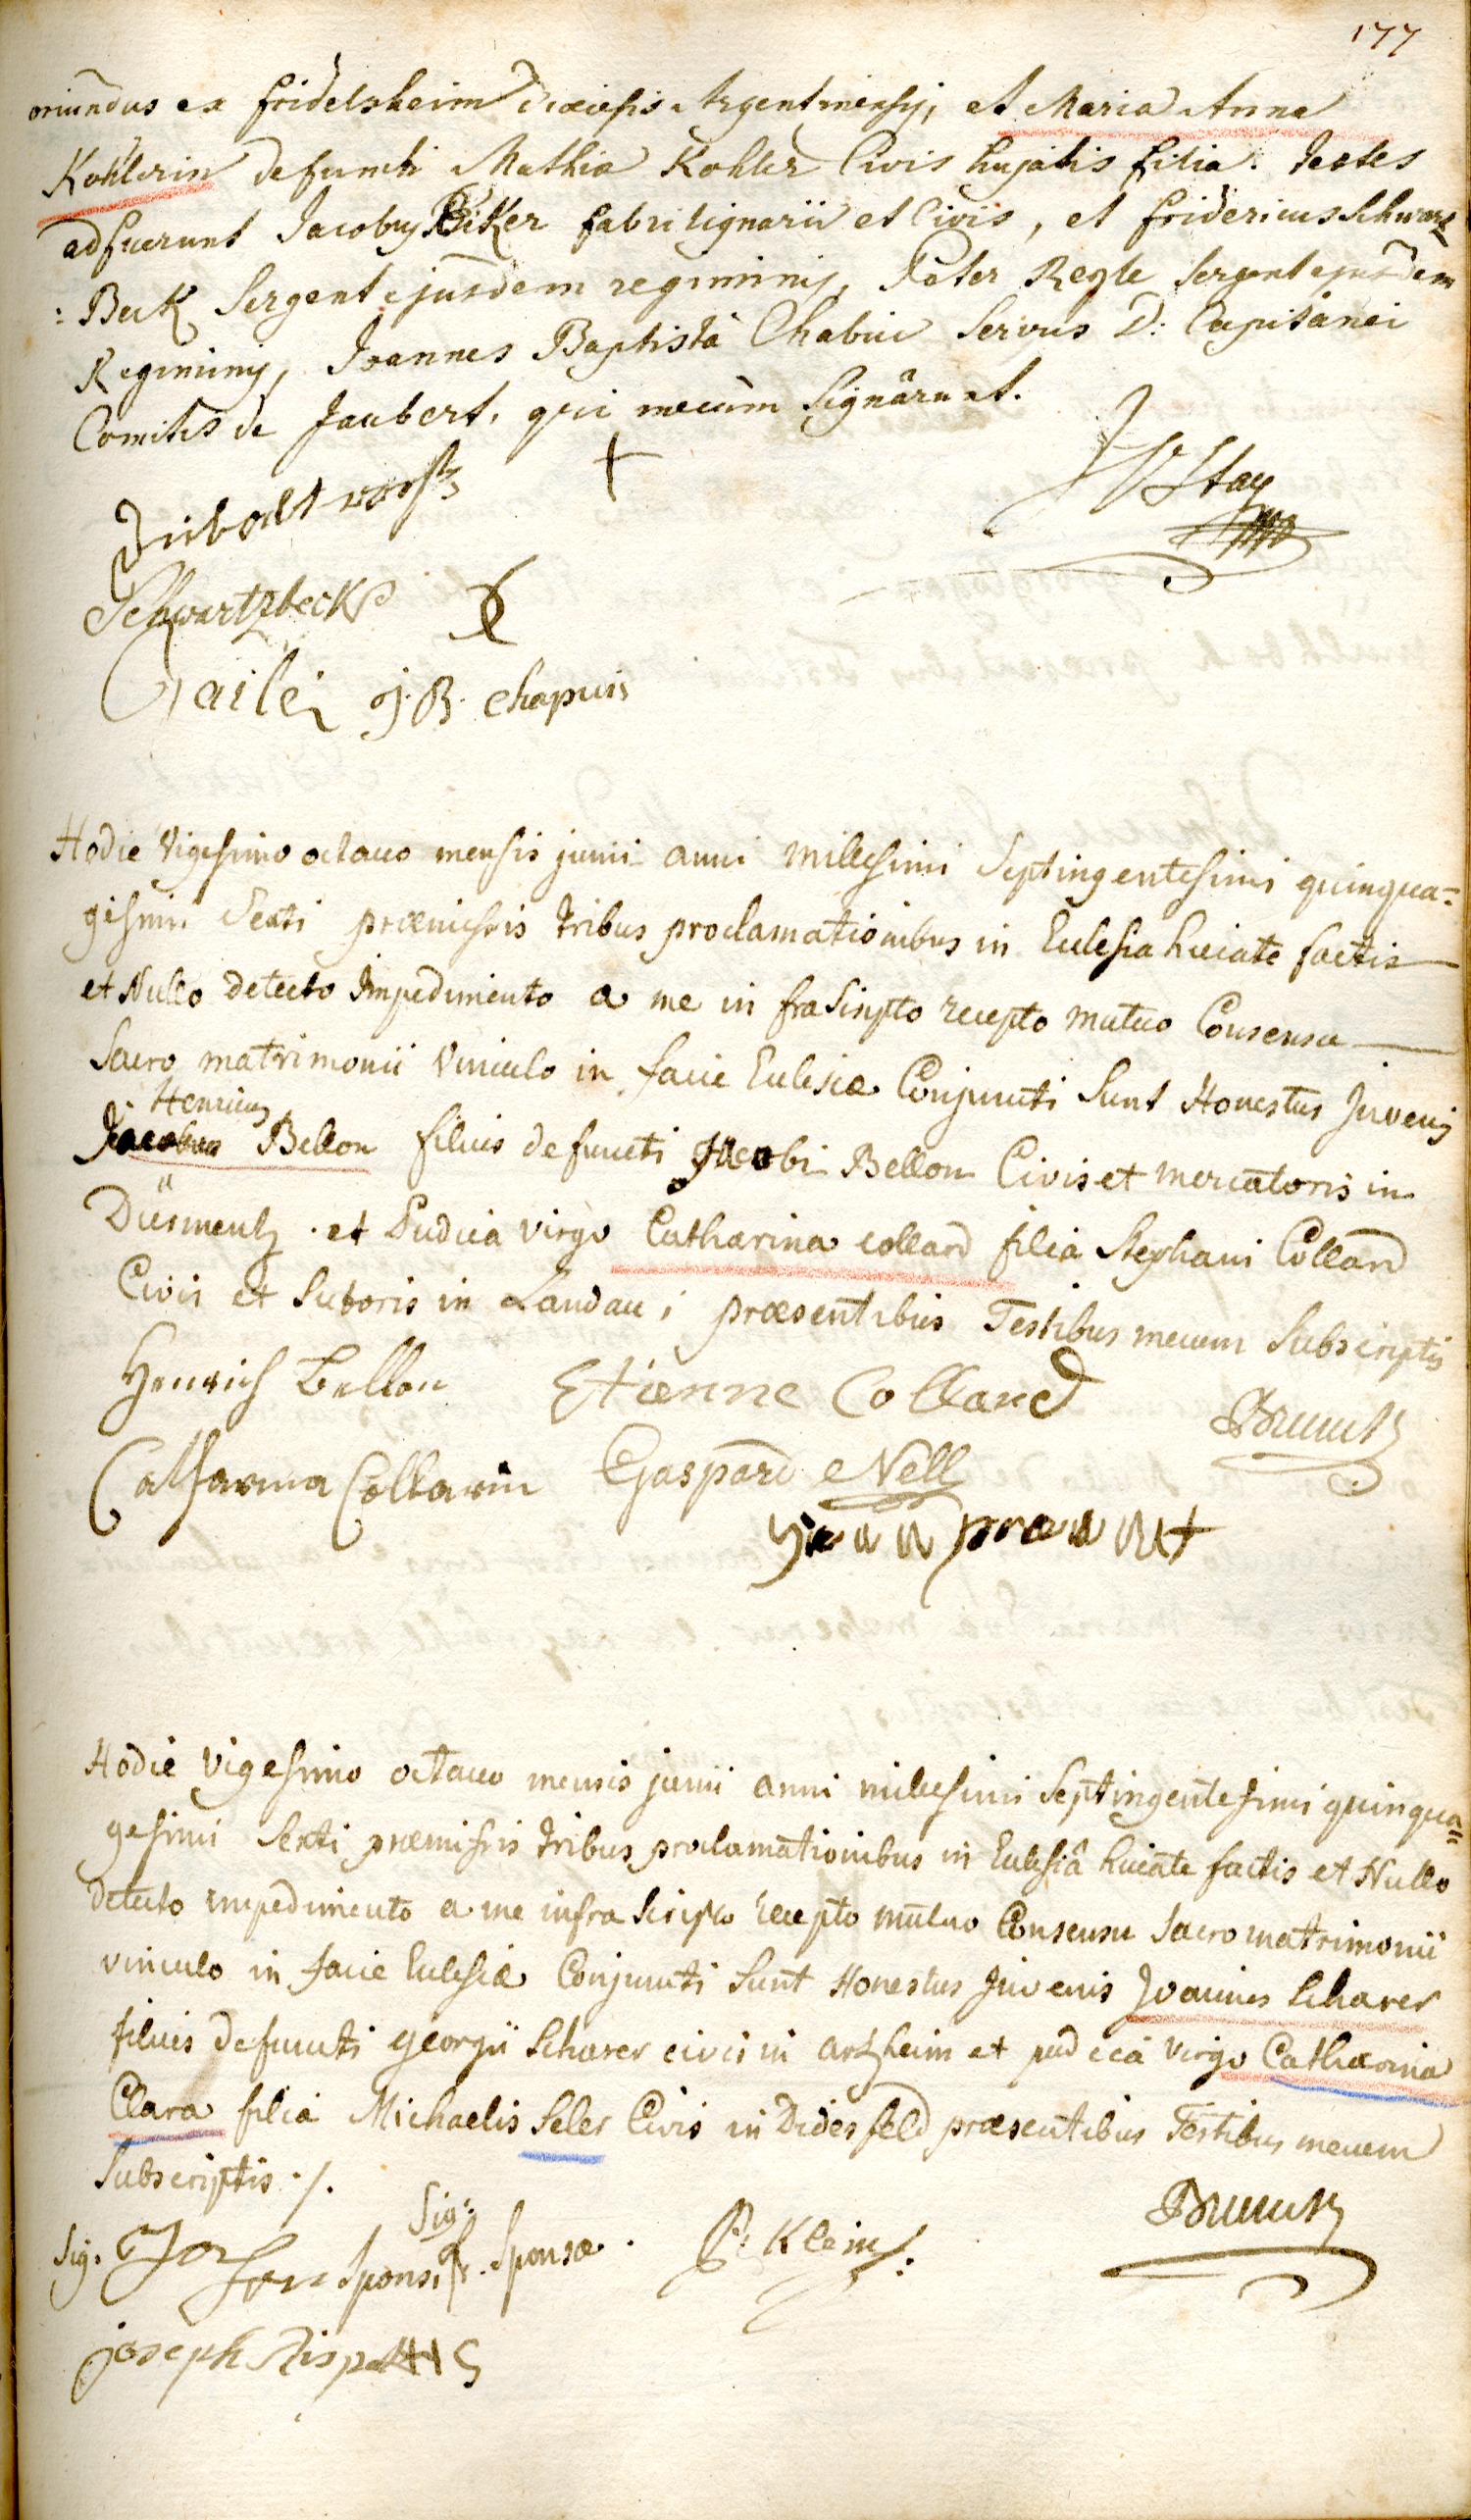 177
oriundus ex fridelsheim Diœcesis Argentinensis, et Maria Anna
Kohlerin defuncti Mathia Kohler Civis hujatis filia. Testes
adfuerunt Jacobus Beker fabri lignarii et Civis, et fridericus Schwarz
: Beck Sergent ejusdem regiminis, Peter Regle Sergent ejusdem
Regiminis, Joannes Baptista Chabui Servus D: Capitanei
Comitis de Jaubert. qui mecum Signârunt.
+
Schwartzbeck
J. B. Chapuis
Hodie Vigesimo octavo mensis junii anni millesimi Septingentesimi quinqua=
gesimi Sexti præmissis tribus proclamationibus in Ecclesia huiate factis
et Nullo detecto Impedimento a me infrascripto recepto mutuo Consensu
Sacro matrimonii Vinculo in facie Eclesiæ Conjuncti Sunt Honestus Juvenis
Henricus
Jacobus Bellon filius defuncti Jacobi Bellon Civis et mercatoris in
Dürmentz. et Pudica virgo Catharina collard filia Stephani Collard
Civis et Sutoris in Landau; præsentibus Testibus mecum Subscriptis
Henrich Bellon Etienne Colland
Catharina Collarin Gaspard Nell
Hodie Vigesimo octavo mensis junii anni millesimi Septingentesimi quinqua=
gesimi Sexti præmissis tribus proclamationibus in Eclesiâ huiate factis et Nullo
detecto impedimento a me infra Scripto recepto mutuo Consensu Sacro matrimonii
vinculo in facie Eclesiæ Conjuncti Sunt Honestus Juvenis Joannes Scharer
filius defuncti georgii Scharer civis in arzheim et pudica virgo Catharina
Clara filia Michaelis Seler Civis in Didesfeld præsentibus Testibus mecum
Subscriptis ./.
Sig. Sponsi Sig: Sponsæ. P: Klein
joseph